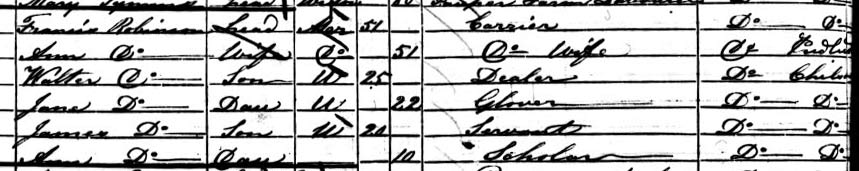 Mary Symonds Head Widow
Francis Robinson Head Mar 51 Carrier Do Do
Ann Do Wife Do 51 Do Wife Do
Walter Do Son U 25 Dealer Do
Jane Do Daur U 22 Glover Do Do
James Do Son U 20 Servant Do Do
Ann Do Daur 10 Scholar Do Do